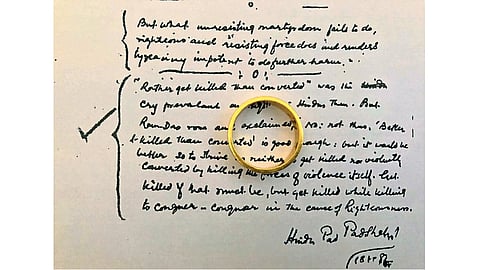 But what unresisting martyrdom fails to do,
righteous and resisting force does and renders
tyranny impotent to do further harm."
: 0 :
"Rather get killed than converted" was the
cry prevalent Hindus then. But
Ramdas rose and exclaimed, No: not thus. 'Better
killed than converted' is good enough: but it would be
better to strive neither get killed nor violently
converted by killing the forces of violence itself. Get
killed if that must be, but get killed while killing
to conquer - conquer in the cause of Righteousness.
Hindu Pad Padshahi